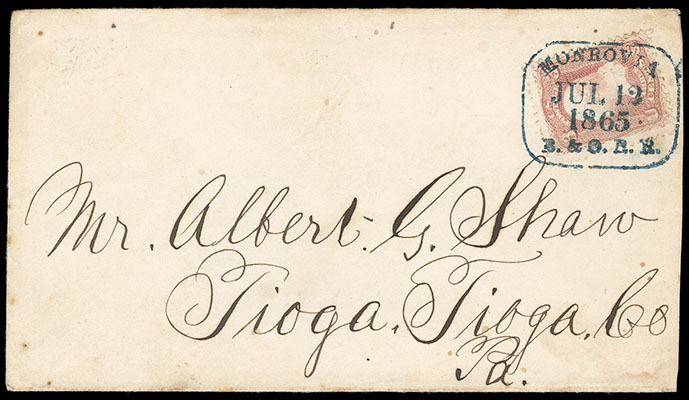 MONROVIA
JUL 12
1865
B. & O. R. R.
Mr. Albert. G. Shaw
Tioga, Tioga, Co
Pa.